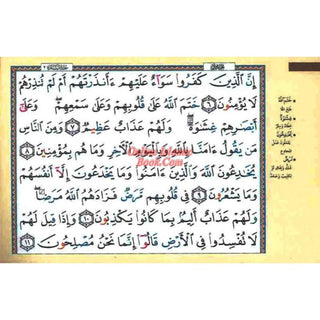 إِنَّ الَّذِينَ كَفَرُوا سَوَآءٌ عَلَيْهِمْ ءَأَنذَرْتَهُمْ أَمْ لَمْ تُنذِرْهُمْ
لَا يُؤْمِنُونَ ٦ خَتَمَ اللَّهُ عَلَىٰ قُلُوبِهِمْ وَعَلَىٰ سَمْعِهِمْ وَعَلَىٰ
أَبْصَٰرِهِمْ غِشَٰوَةٌ وَلَهُمْ عَذَابٌ عَظِيمٌ ٧ وَمِنَ النَّاسِ
مَن يَقُولُ ءَامَنَّا بِاللَّهِ وَبِالْيَوْمِ الْآخِرِ وَمَا هُم بِمُؤْمِنِينَ ٨
يُخَٰدِعُونَ اللَّهَ وَالَّذِينَ ءَامَنُوا وَمَا يَخْدَعُونَ إِلَّا أَنفُسَهُمْ
وَمَا يَشْعُرُونَ ٩ فِي قُلُوبِهِم مَّرَضٌ فَزَادَهُمُ اللَّهُ مَرَضًا
وَلَهُمْ عَذَابٌ أَلِيمٌ بِمَا كَانُوا يَكْذِبُونَ ١٠ وَإِذَا قِيلَ لَهُمْ
لَا تُفْسِدُوا فِي الْأَرْضِ قَالُوا إِنَّمَا نَحْنُ مُصْلِحُونَ ١١
Online Islamic
Book.Com